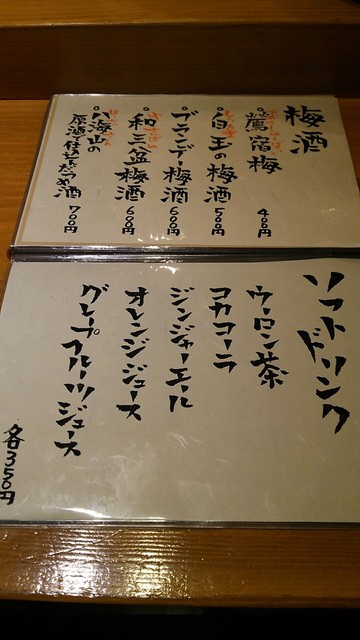 梅酒
鶯宿梅 400円
白玉の梅酒 500円
ブランデー梅酒 600円
和三盆梅酒 600円
八海山の
原酒で仕込んだうめ酒 700円
ソフトドリンク
ウーロン茶
コカコーラ
ジンジャーエール
オレンジジュース
グレープフルーツジュース
各350円